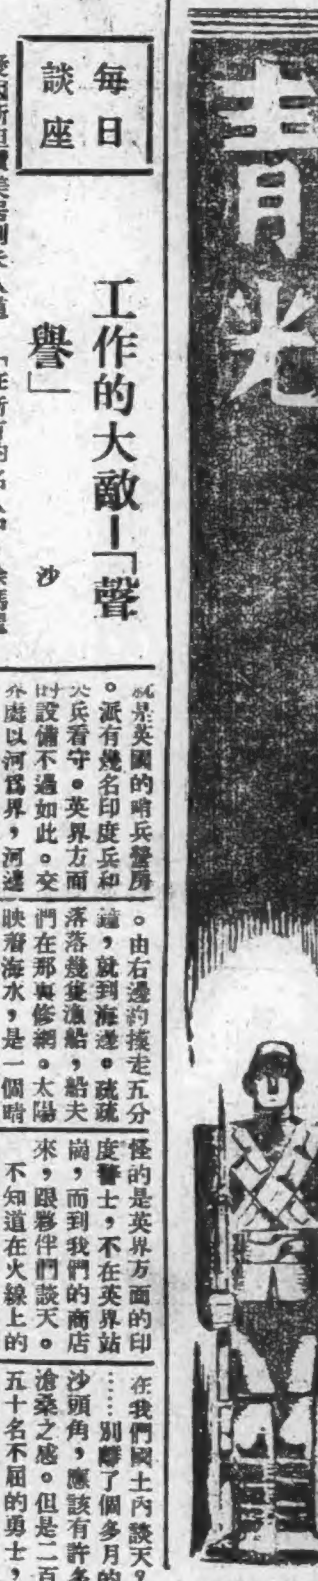 青光
每日
談座
工作的大敵—「聲
譽」
沙
就是英國的哨兵營房
。派有幾名印度兵和
英兵看守。英界方面
的設備不過如此。交
界處以河爲界,河邊
。由右邊約摸走五分
遠,就到海邊。疏疏
落落幾隻漁船,船夫
們在那裏修網。太陽
映着海水,是一個晴
怪的是英界方面的印
度警士,不在英界站
崗,而到我們的商店
來,跟夥伴們談天。
不知道在火線上的
在我們國土內談天,
……別離了個多月的
沙頭角,應該有許多
滄桑之感。但是二百
五十名不屈的勇士,